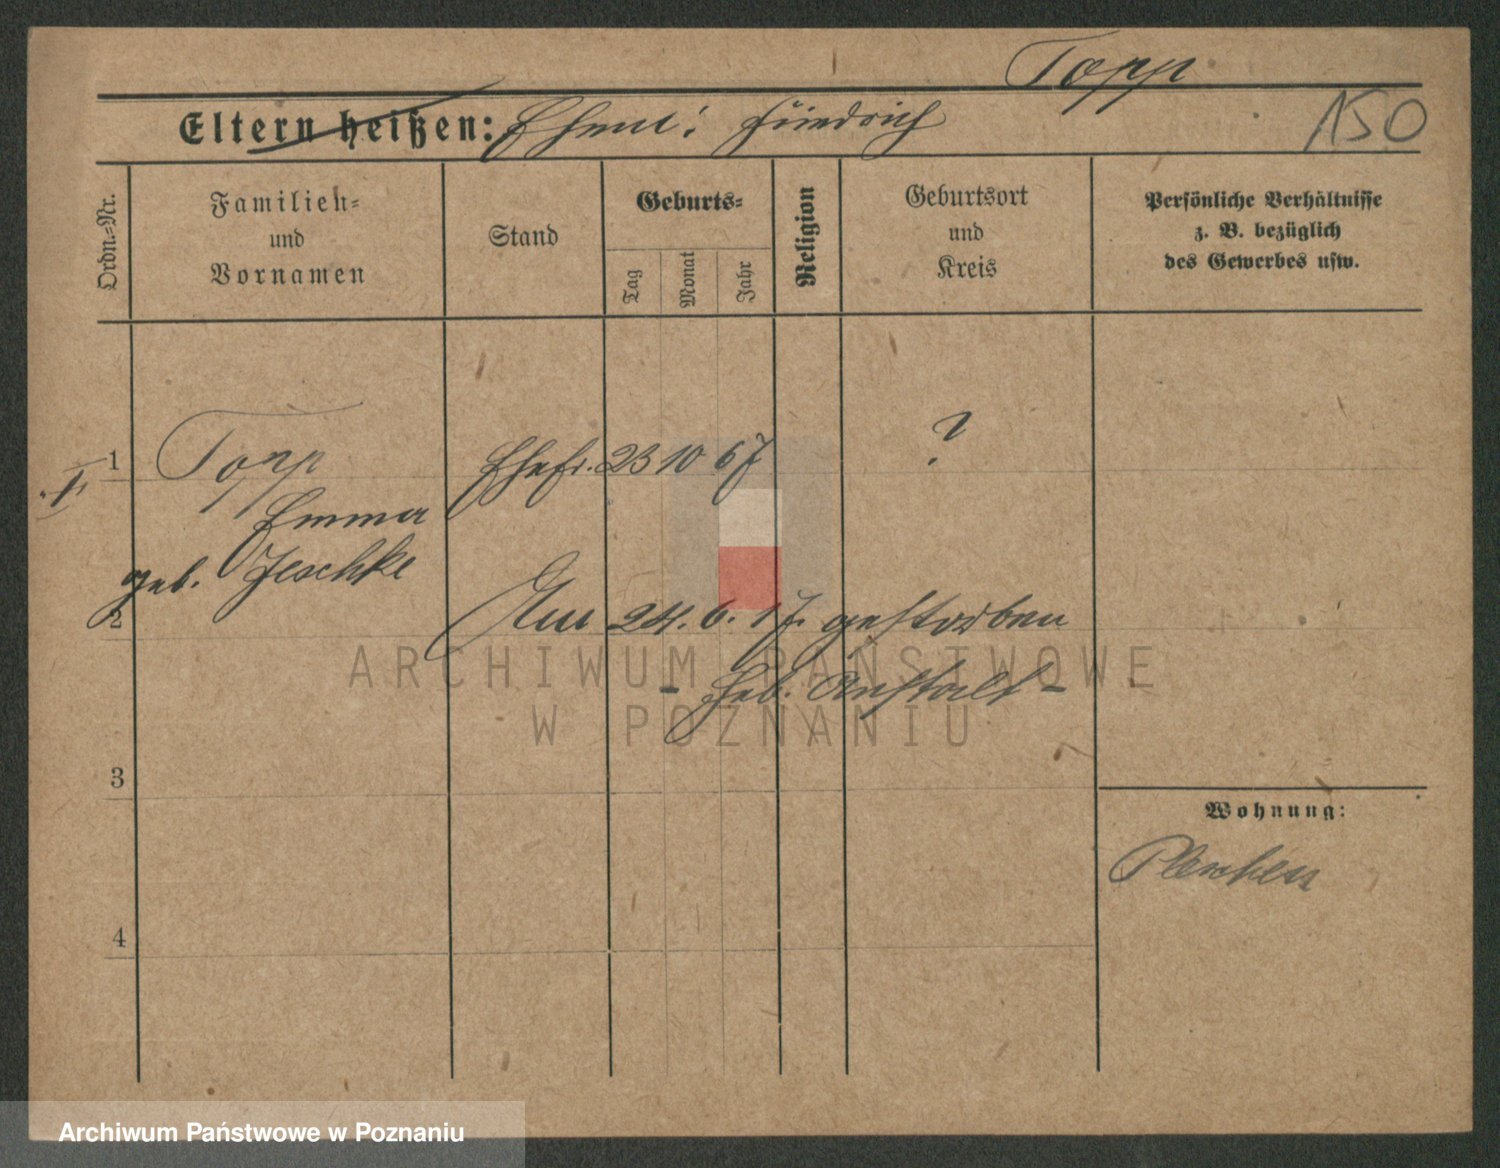 Topp
Eltern heißen: Ehem: Friedrich
150
Ordn.-Nr.
Familien-
und
Vornamen
Stand
Geburts-
Tag
Monat
Jahr
Religion
Geburtsort
und
Kreis
Persönliche Verhältnisse
z. B. bezüglich
des Gewerbes usw.
1 Topp Ehefr. 23 10 67 ?
Emma
geb. Jeschke
2 Am 24. 6. 17. gestorben
- Heb. Anstalt -
ARCHIWUM PAŃSTWOWE
W POZNANIU
3
Wohnung:
4
Archiwum Państwowe w Poznaniu